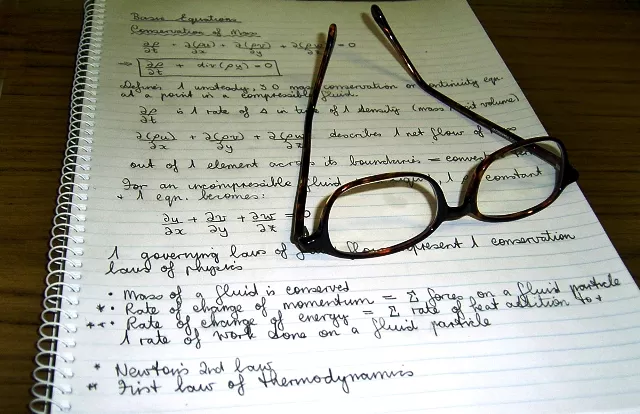 Basic Equations
Conservation of Mass
∂ρ/∂t + ∂(ρu)/∂x + ∂(ρv)/∂y + ∂(ρw)/∂z = 0
⇒ ∂ρ/∂t + div(ρu) = 0
Defines 1 unsteady, 3D mass conservation or continuity eqn
at a point in a compressible fluid.
∂ρ/∂t is 1 rate of Δ in time of 1 density (mass volume)
∂(ρu)/∂x + ∂(ρv)/∂y + ∂(ρw)/∂z describes 1 net flow of
out of 1 element across its boundaries =
For an incompressible fluid 1 constant
+ 1 eqn. becomes:
∂u/∂x + ∂v/∂y + ∂w/∂z = 0
1 governing laws of flow represent 1 conservation
laws of physics
• Mass of a fluid is conserved
*• Rate of change of momentum = Σ forces on a fluid particle
**• Rate of change of energy = Σ rate of heat addition to +
1 rate of work done on a fluid particle
* Newtons 2nd law
** First law of thermodynamics